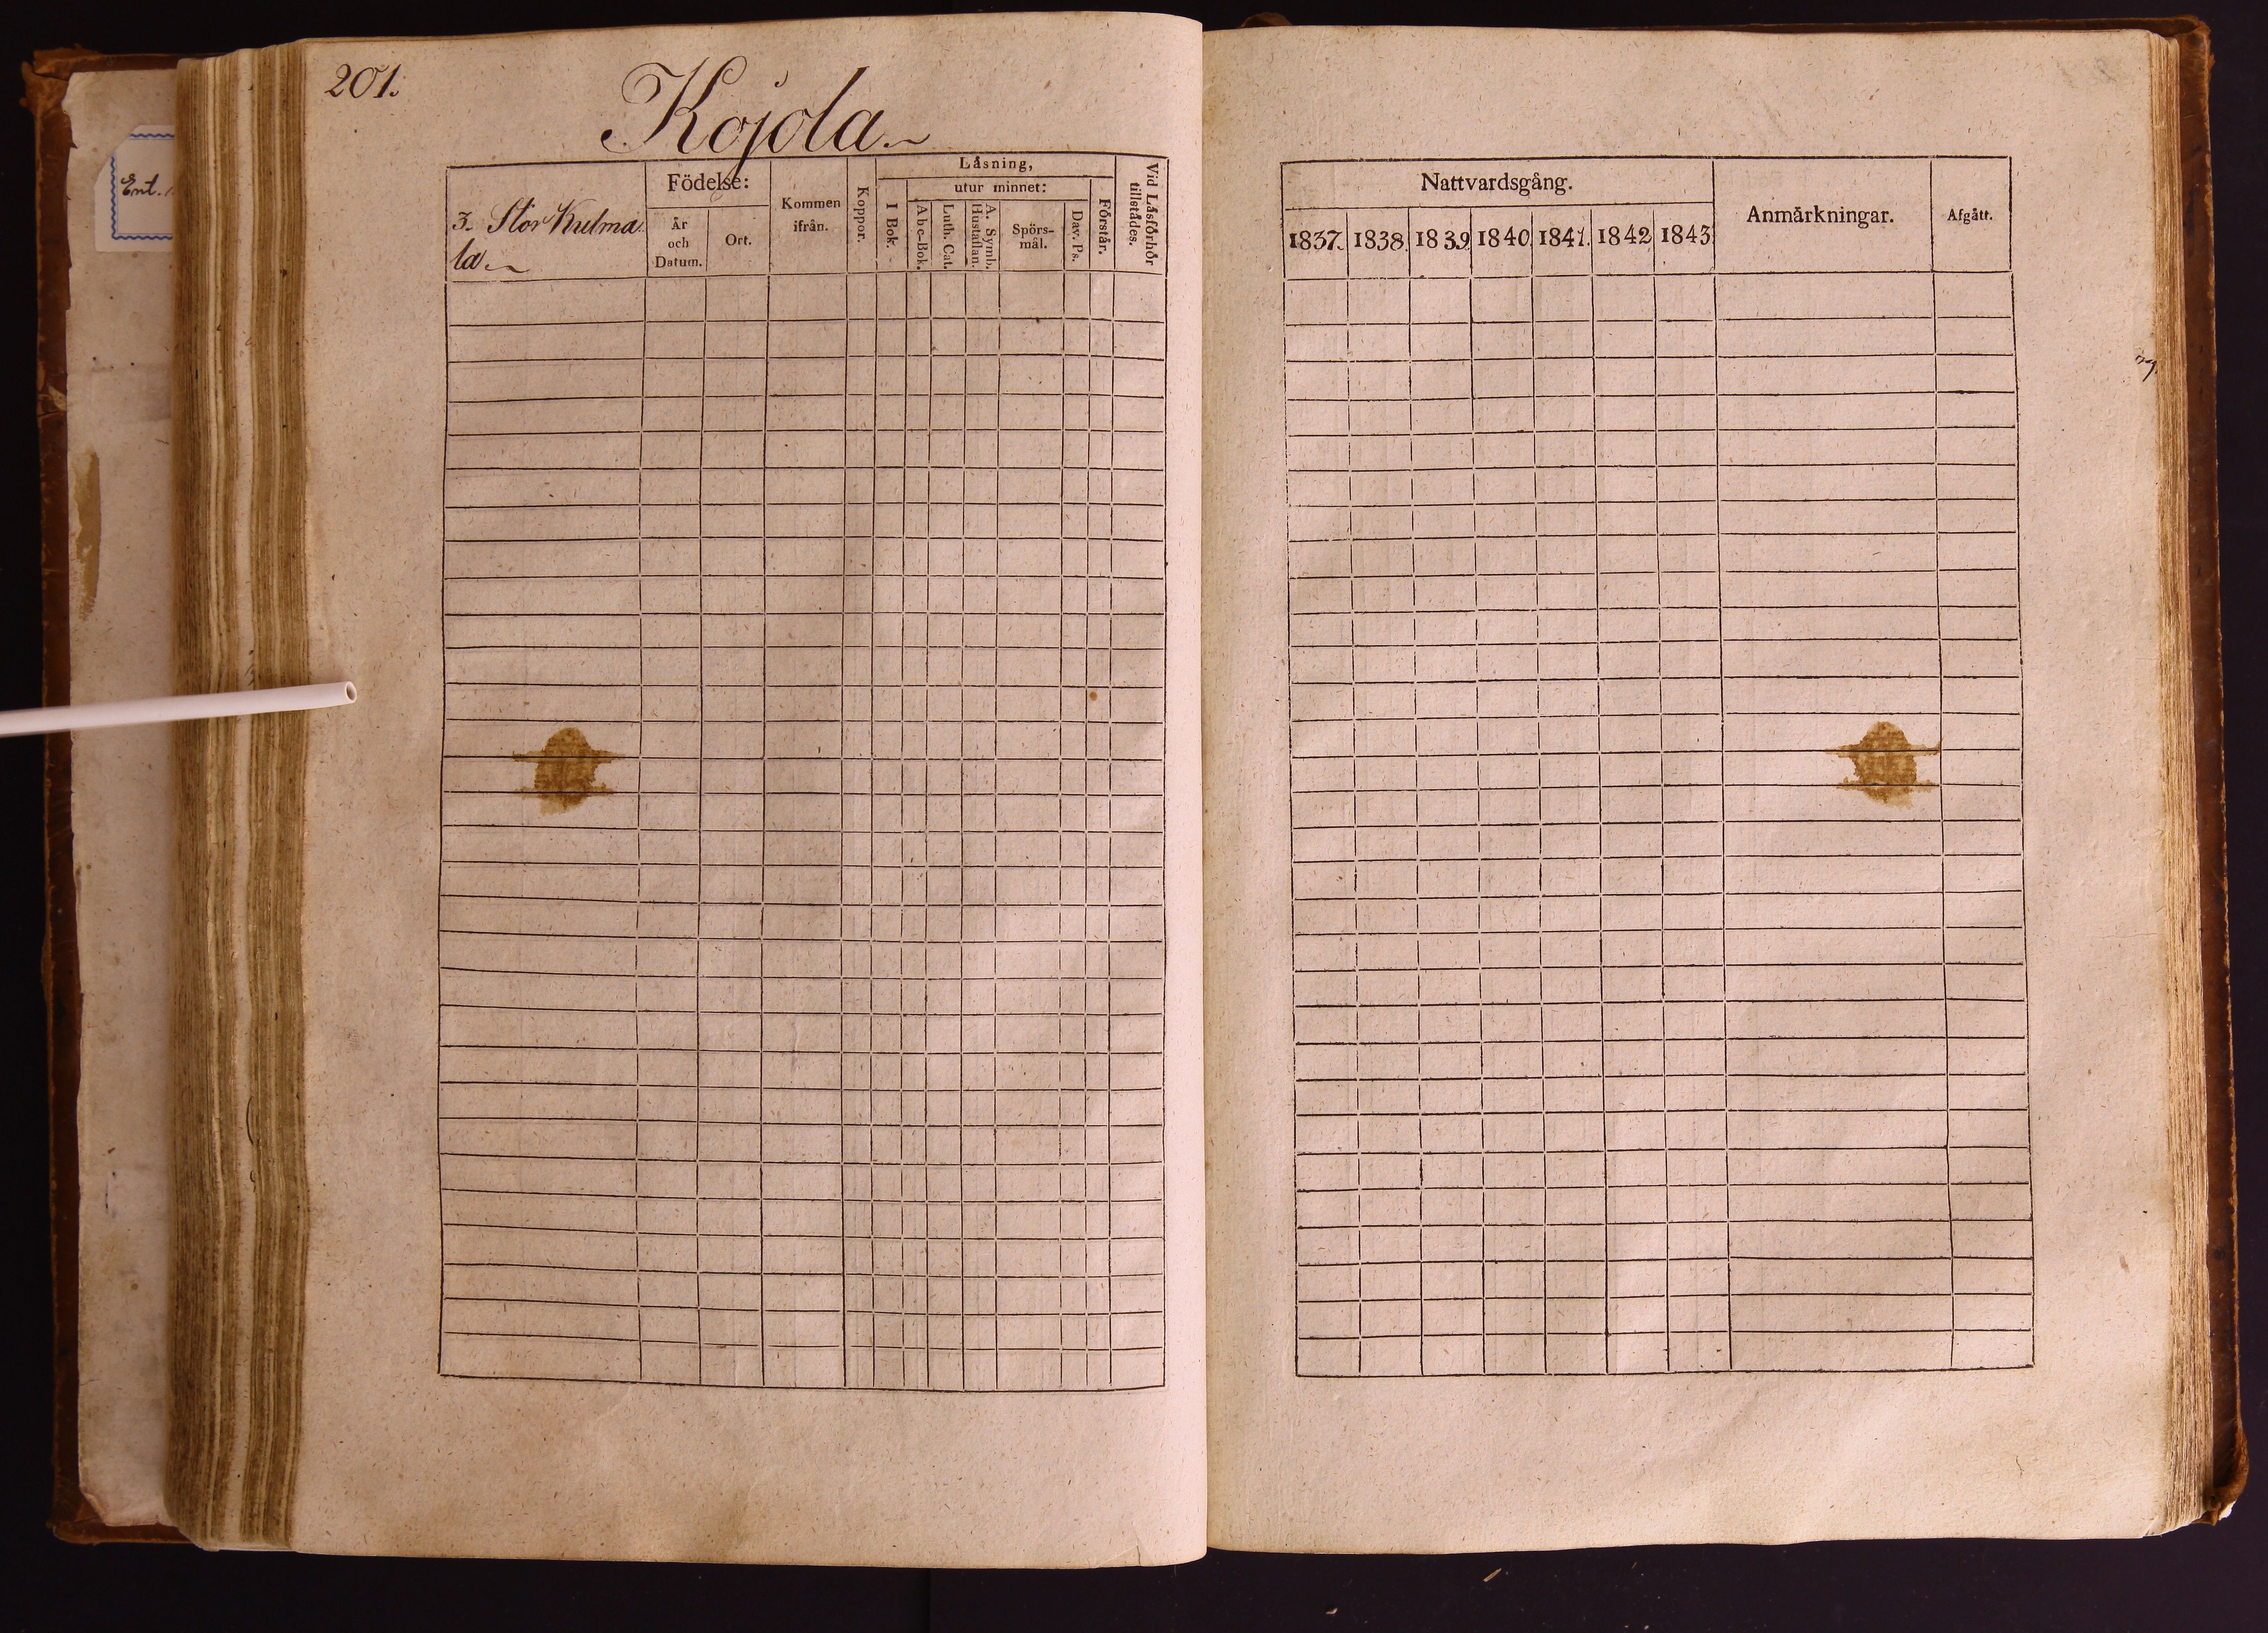 201.
Kojola.
Ent.
3. Stor Kulma
la.
Födelse:
År
och
Datum.
Ort.
Kommen
ifrån.
Koppor.
Läsning,
I Bok.
utur minnet:
Abc-Bok.
Luth. Cat.
A. Symb.
Hustaflan.
Spörs-
mål.
Dav. Ps.
Förstår.
Vid Läsförhör
tillstådes.
Nattvardsgång.
1837. 1838. 1839 1840 1841. 1842 1843.
Anmärkningar.
Afgått.